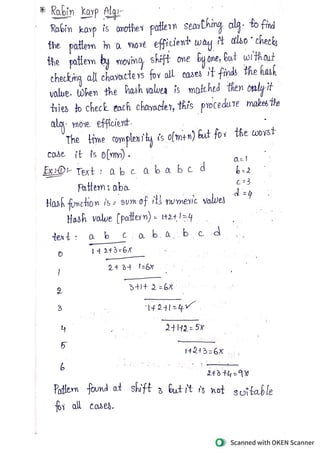 * Rabin Karp Alg:-
Rabin karp is another pattern searching alg. to find
the pattern in a more efficient way it also checks
the pattern by moving shift one by one, but without
checking all characters for all cases it finds the hash
value. When the hash values is matched then only it
tries to check each character, this procedure makes the
alg. more efficient.
The time complexity is O(m+n) but for the worst
case it is O(mn).
Ex:-①:- Text : a b c a b a b c d
Pattern : aba
a=1
b=2
c=3
d=4
Hash function is = sum of its numeric values
Hash value (pattern) = 1+2+1=4
text : a b c a b a b c d
0 1+2+3=6X
1 2+3+1=6X
2 3+1+2=6X
3 1+2+1=4✓
4 2+1+2=5X
5 1+2+3=6X
6 2+3+4=9X
Pattern found at shift 3 but it is not suitable
for all cases.
Scanned with OKEN Scanner